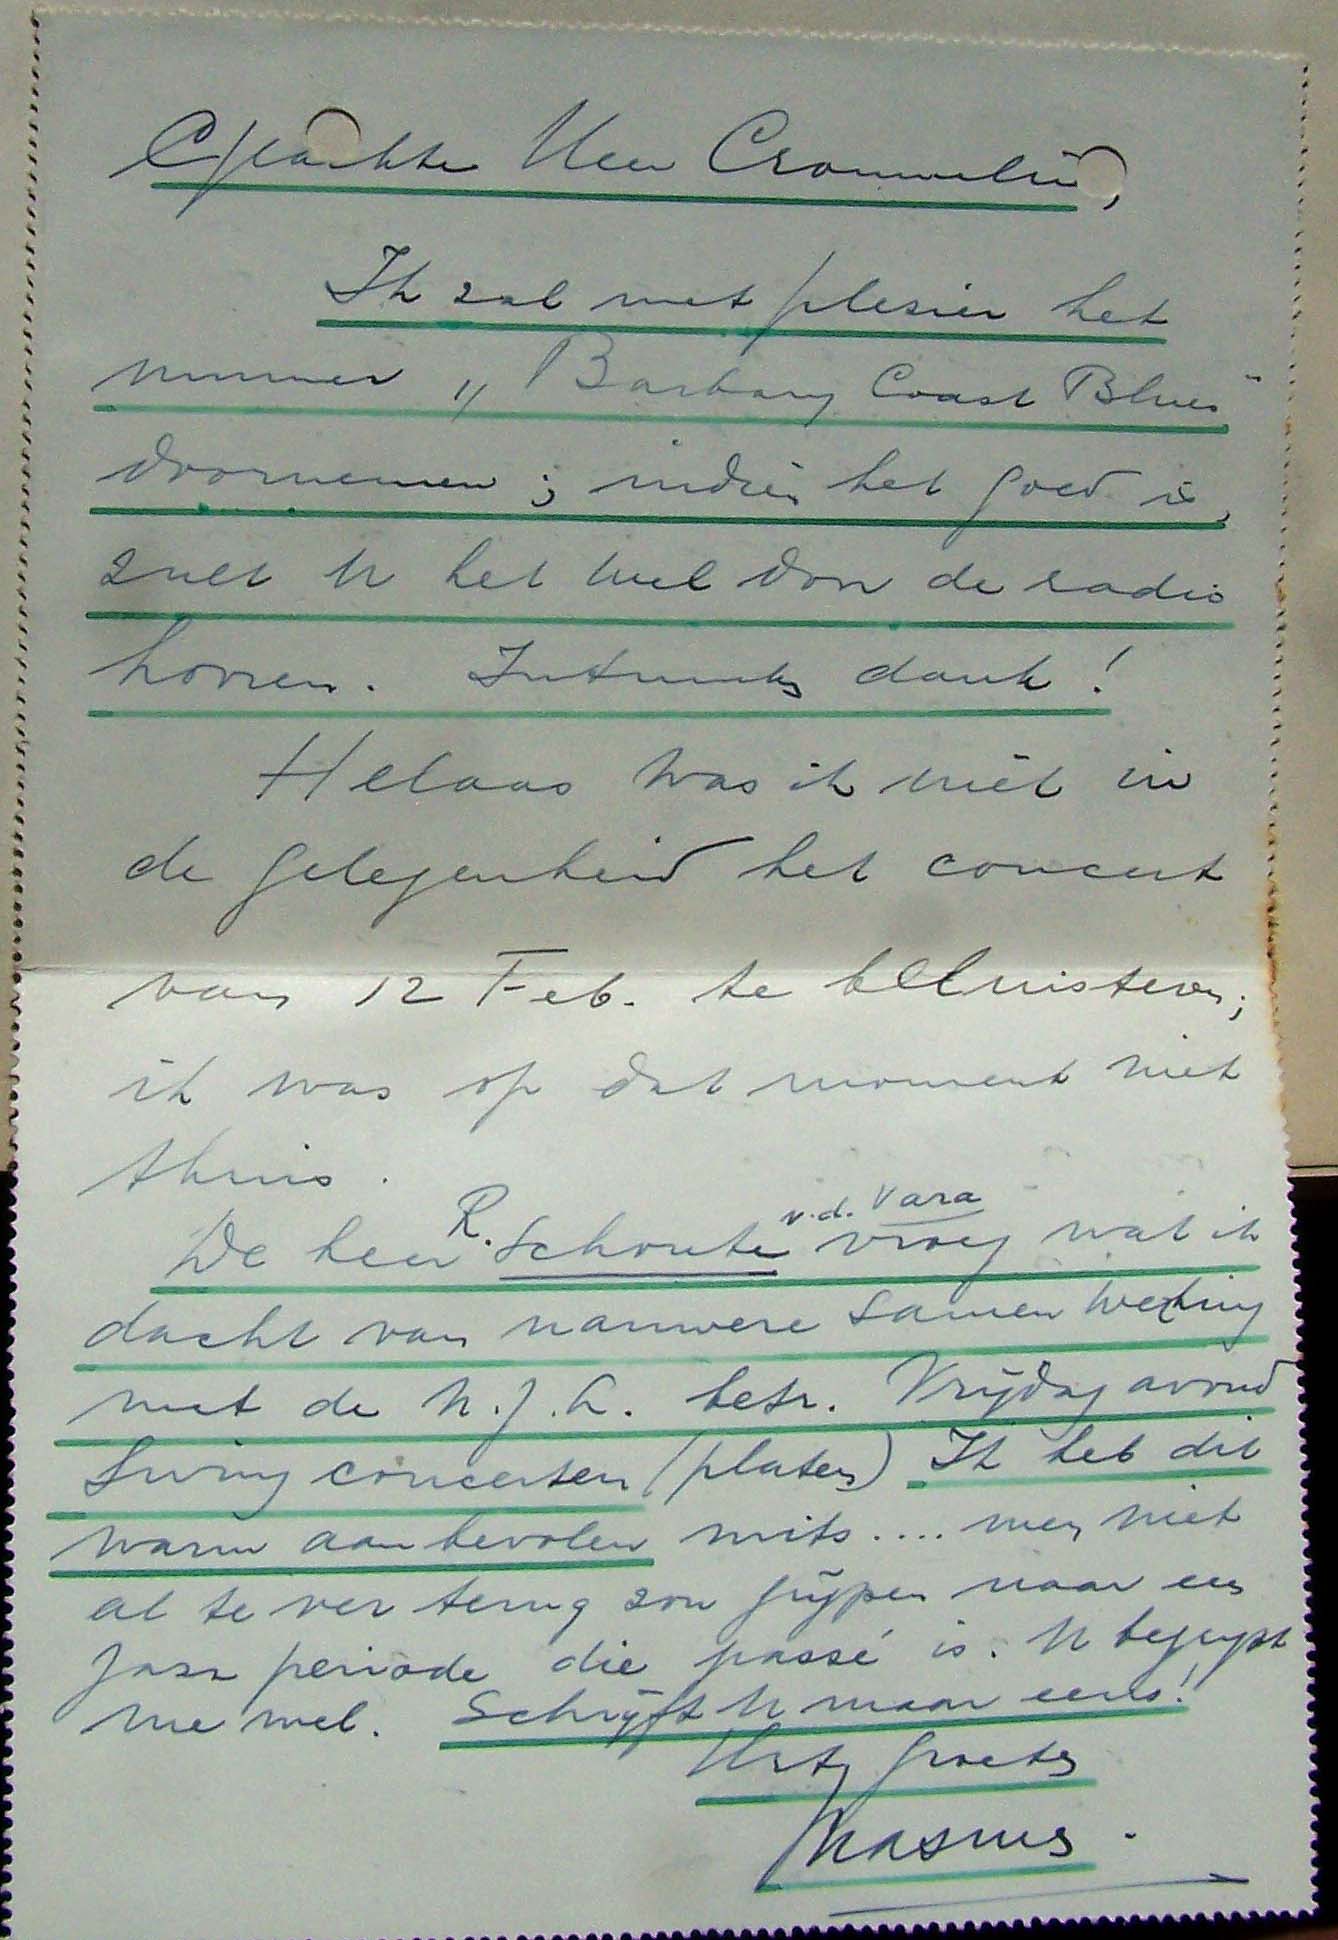 Geachte Heer Crommelin,
Ik zal met plesier het
nummer „Barbary Coast Blues"
doornemen; indien het goed is,
zult U het wel door de radio
horen. Intusschen dank!
Helaas was ik niet in
de gelegenheid het concert
van 12 Feb. te beluisteren;
ik was op dat moment niet
thuis.
De heer R. Schoute v.d. Vara vroeg wat ik
dacht van nauwere samenwerking
met de N.J.C. betr. Vrijdag avond
Swing concerten (platen) Ik heb dit
warm aanbevolen mits.... men niet
al te ver terug zou grijpen naar een
Jazz periode die passé is. U begrijpt
me wel. Schrijft U maar eens!
Hrt. Groeten